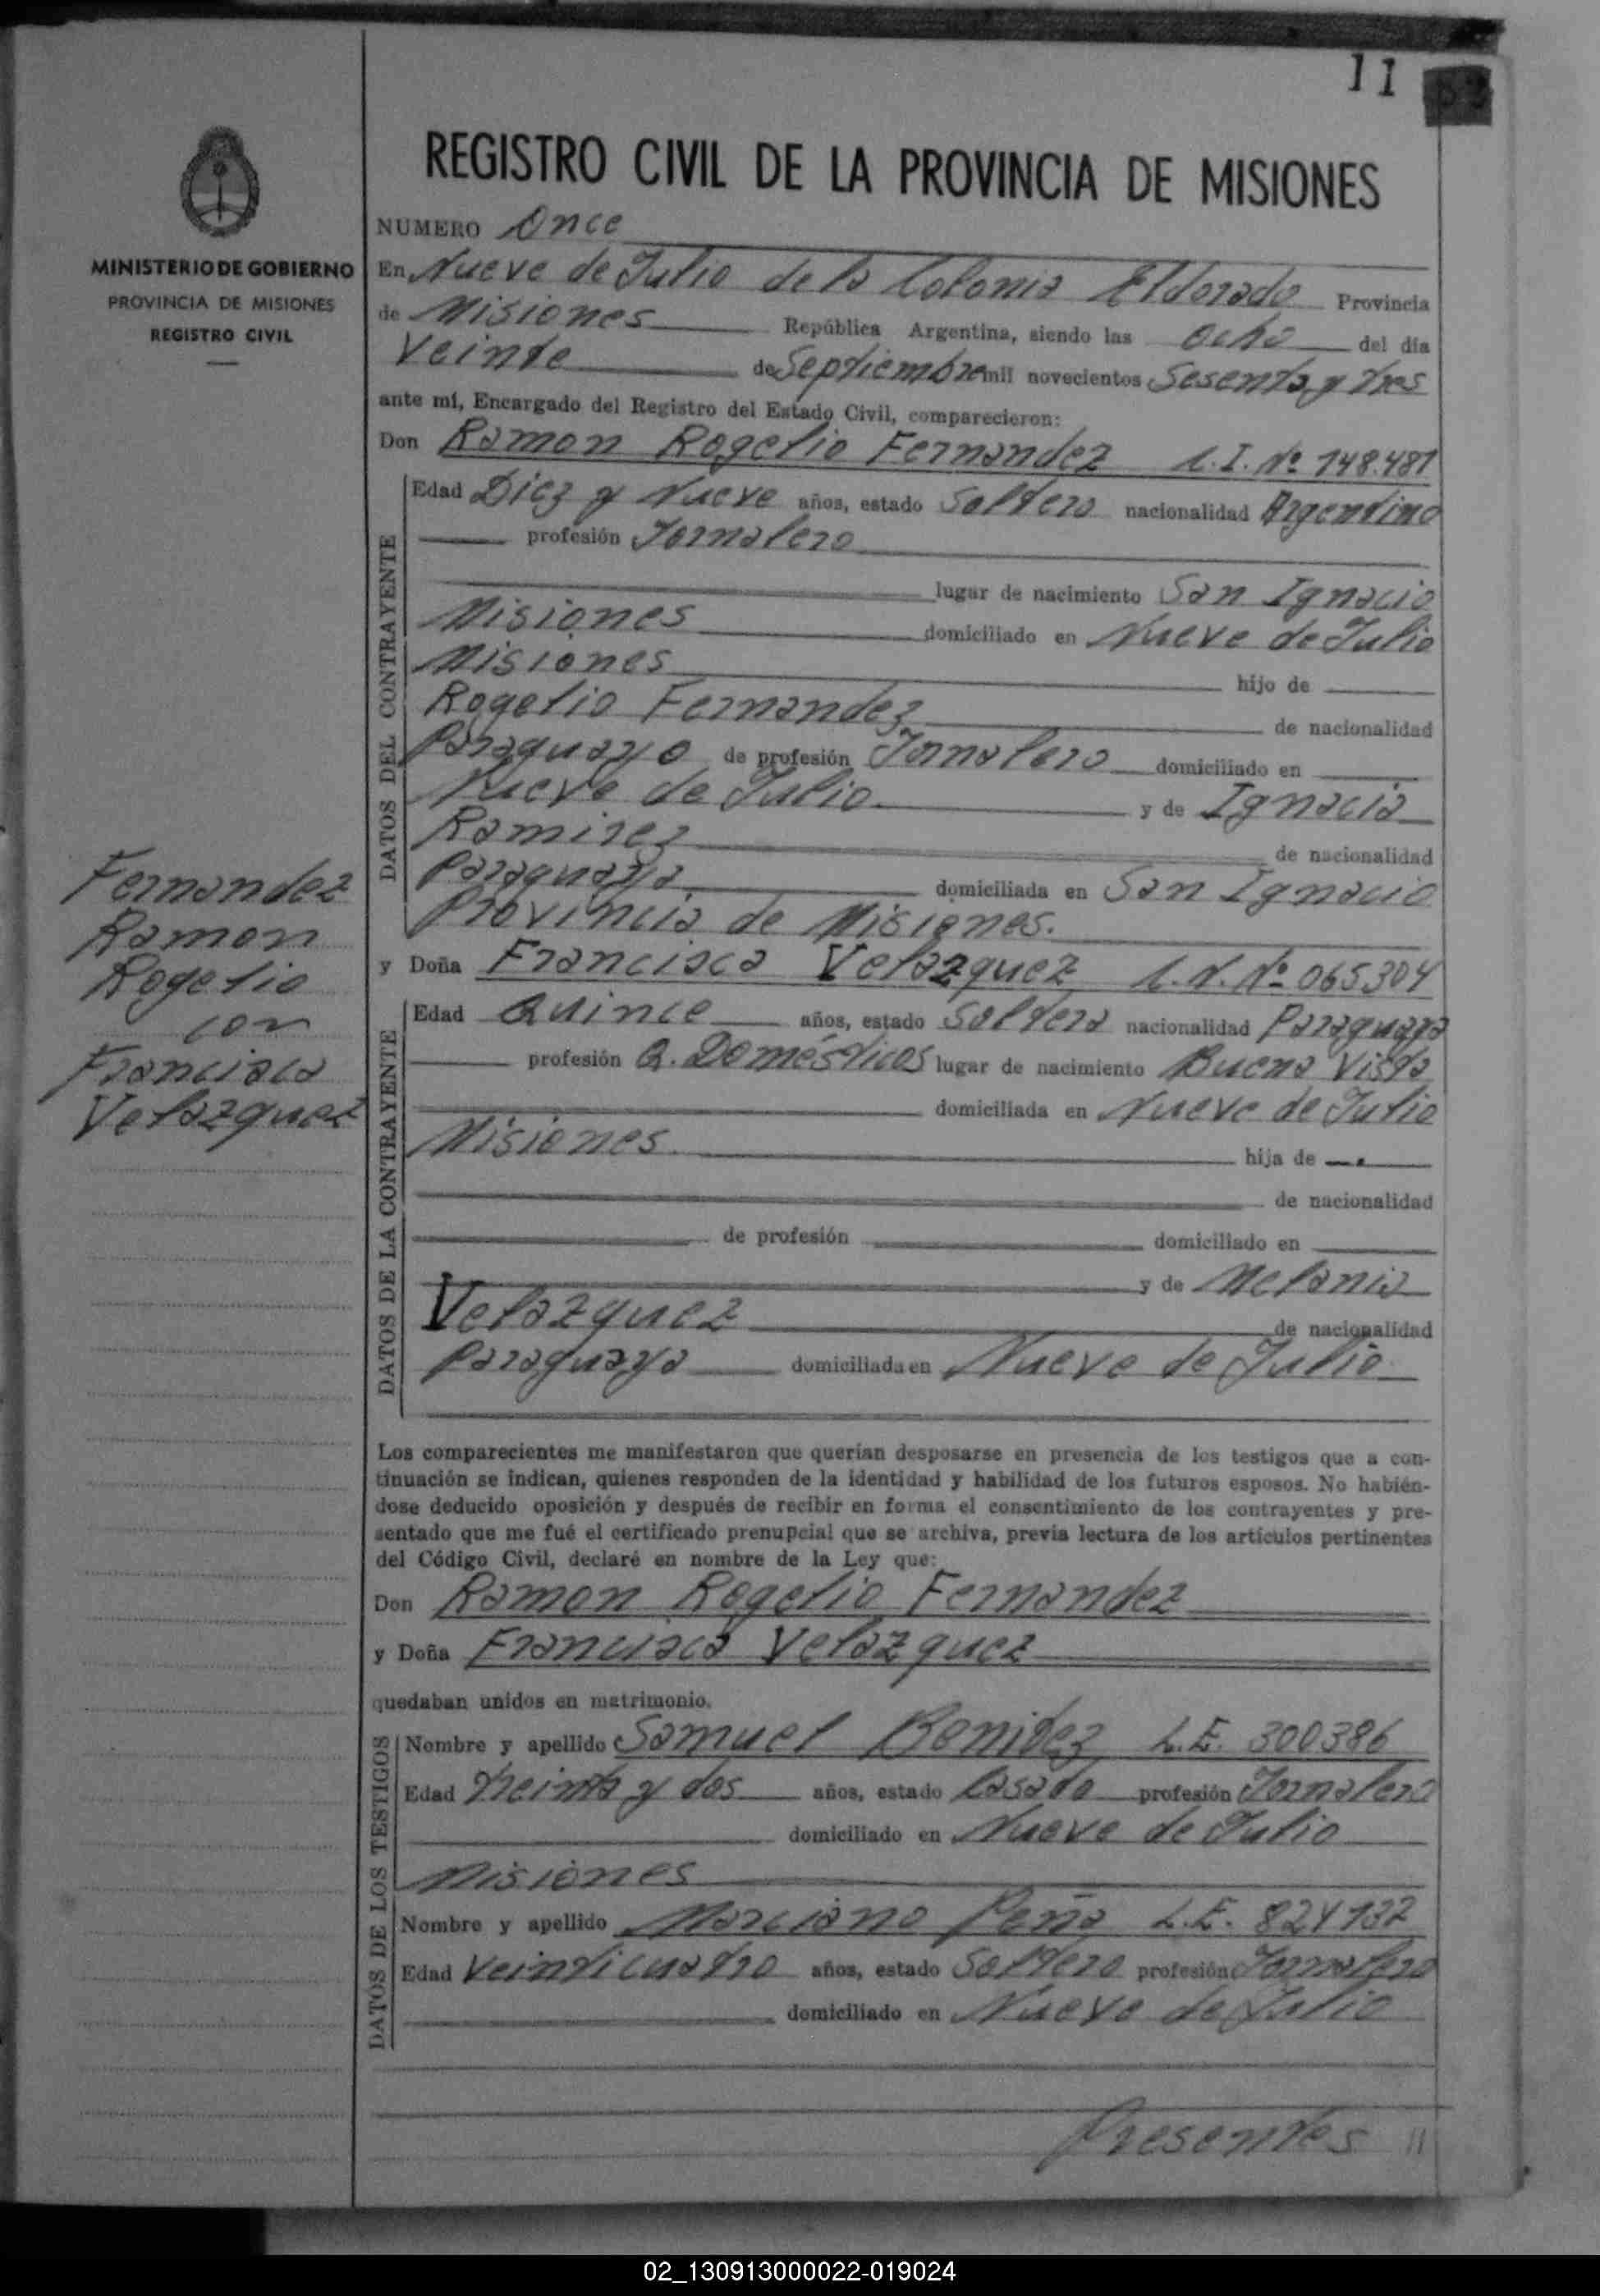 11
REGISTRO CIVIL DE LA PROVINCIA DE MISIONES
MINISTERIO DE GOBIERNO
PROVINCIA DE MISIONES
REGISTRO CIVIL
NUMERO Once
En Nueve de Julio de la Colonia Eldorado Provincia
de Misiones República Argentina, siendo las ocho del día
Veinte de Septiembre mil novecientos Sesenta y tres
ante mí, Encargado del Registro del Estado Civil, comparecieron:
Don Ramon Rogelio Fernandez C.I. Nº 148.481
DATOS DEL CONTRAYENTE
Edad Diez y Nueve años, estado Soltero nacionalidad Argentino
profesión Jornalero
lugar de nacimiento San Ignacio
Misiones domiciliado en Nueve de Julio
Misiones hijo de
Rogelio Fernandez de nacionalidad
Paraguayo de profesión Jornalero domiciliado en
Nueve de Julio y de Ignacia
Ramirez de nacionalidad
Paraguaya domiciliada en San Ignacio
Provincia de Misiones.
Fernandez
Ramon
Rogelio
con
Francisca
Velazquez
y Doña Francisca Velazquez C.N. Nº 065304
DATOS DE LA CONTRAYENTE
Edad Quince años, estado Soltera nacionalidad Paraguaya
profesión Q. Domésticos lugar de nacimiento Buena Vista
domiciliada en Nueve de Julio
Misiones hija de
de nacionalidad
de profesión domiciliado en
y de Melania
Velazquez de nacionalidad
Paraguaya domiciliada en Nueve de Julio
Los comparecientes me manifestaron que querían desposarse en presencia de los testigos que a con-
tinuación se indican, quienes responden de la identidad y habilidad de los futuros esposos. No habién-
dose deducido oposición y después de recibir en forma el consentimiento de los contrayentes y pre-
sentado que me fué el certificado prenupcial que se archiva, previa lectura de los artículos pertinentes
del Código Civil, declaré en nombre de la Ley que:
Don Ramon Rogelio Fernandez
y Doña Francisca Velazquez
quedaban unidos en matrimonio.
DATOS DE LOS TESTIGOS
Nombre y apellido Samuel Benitez L.E. 300386
Edad treinta y dos años, estado Casado profesión Jornalero
domiciliado en Nueve de Julio
Misiones
Nombre y apellido Marciano Peña L.E. 824132
Edad Veinticuatro años, estado Soltero profesión Jornalero
domiciliado en Nueve de Julio
Presentes //
02_130913000022-019024